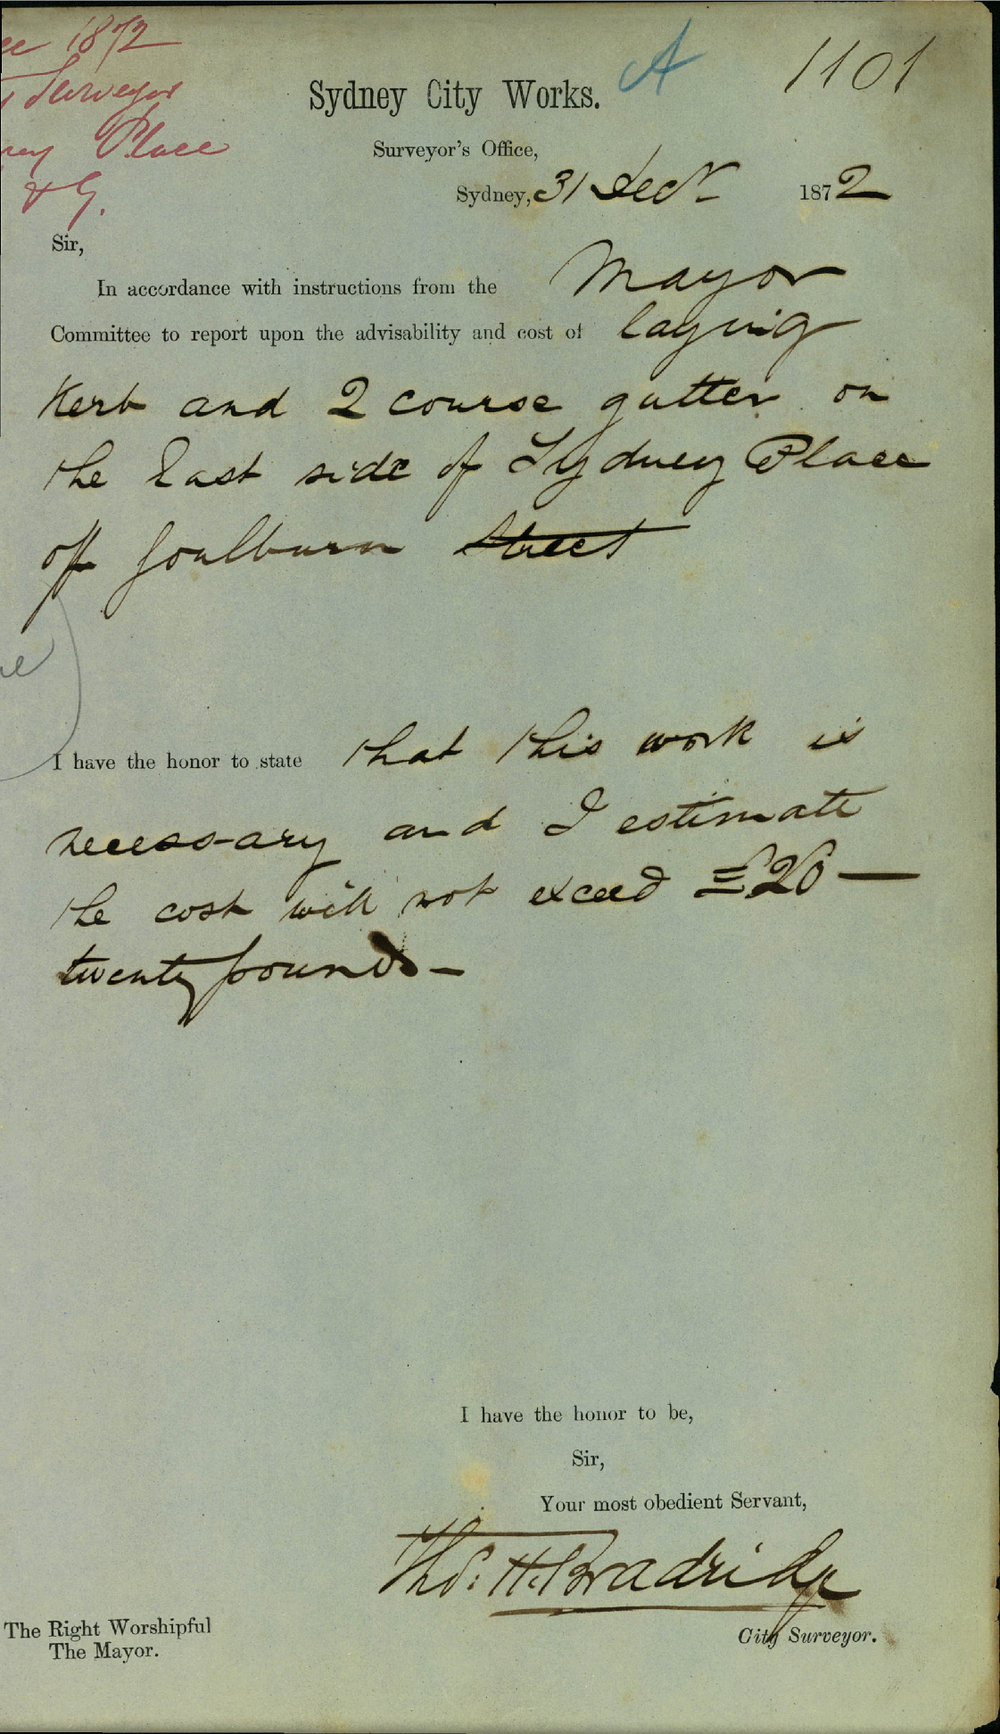 1872
Surveyor
Place
& G.
A
1101
Sydney City Works.
Surveyor's Office,
Sydney, 31 Decr 1872
Sir,
In accordance with instructions from the Mayor
Committee to report upon the advisability and cost of laying
Kerb and 2 course gutter on
the East side of Sydney Place
off Goulburn Street
I have the honor to state that this work is
necessary and I estimate
the cost will not exceed £20 —
twenty pounds —
I have the honor to be,
Sir,
Your most obedient Servant,
Thos. H. Bradridge
City Surveyor.
The Right Worshipful
The Mayor.